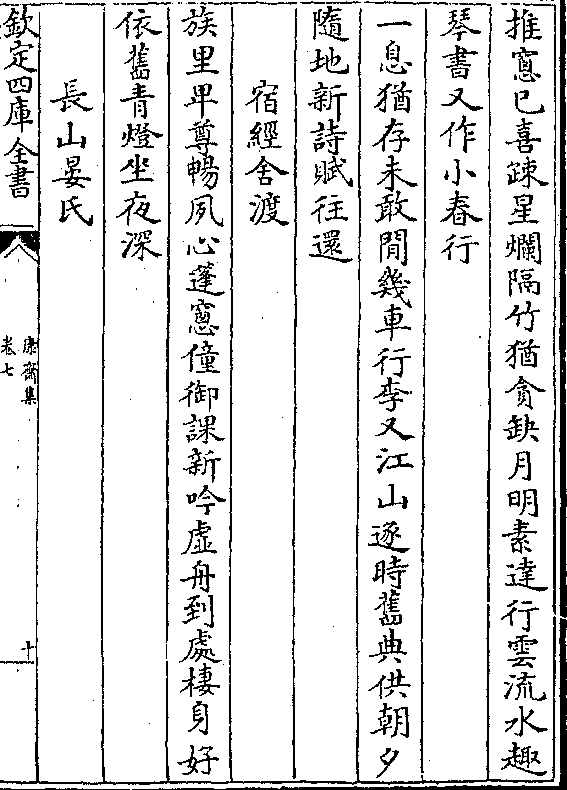 推窓已喜疎星爛隔竹猶貪缺月明素達行雲流水趣
琴書又作小春行
一息猶存未敢閒幾車行李又江山逐時舊典供朝夕
隨地新詩賦往還
宿經舍渡
族里卑尊暢夙心蓬窓僮御課新吟虛舟到處棲身好
依舊青燈坐夜深
長山晏氏
欽定四庫全書
康齋集
卷七
十